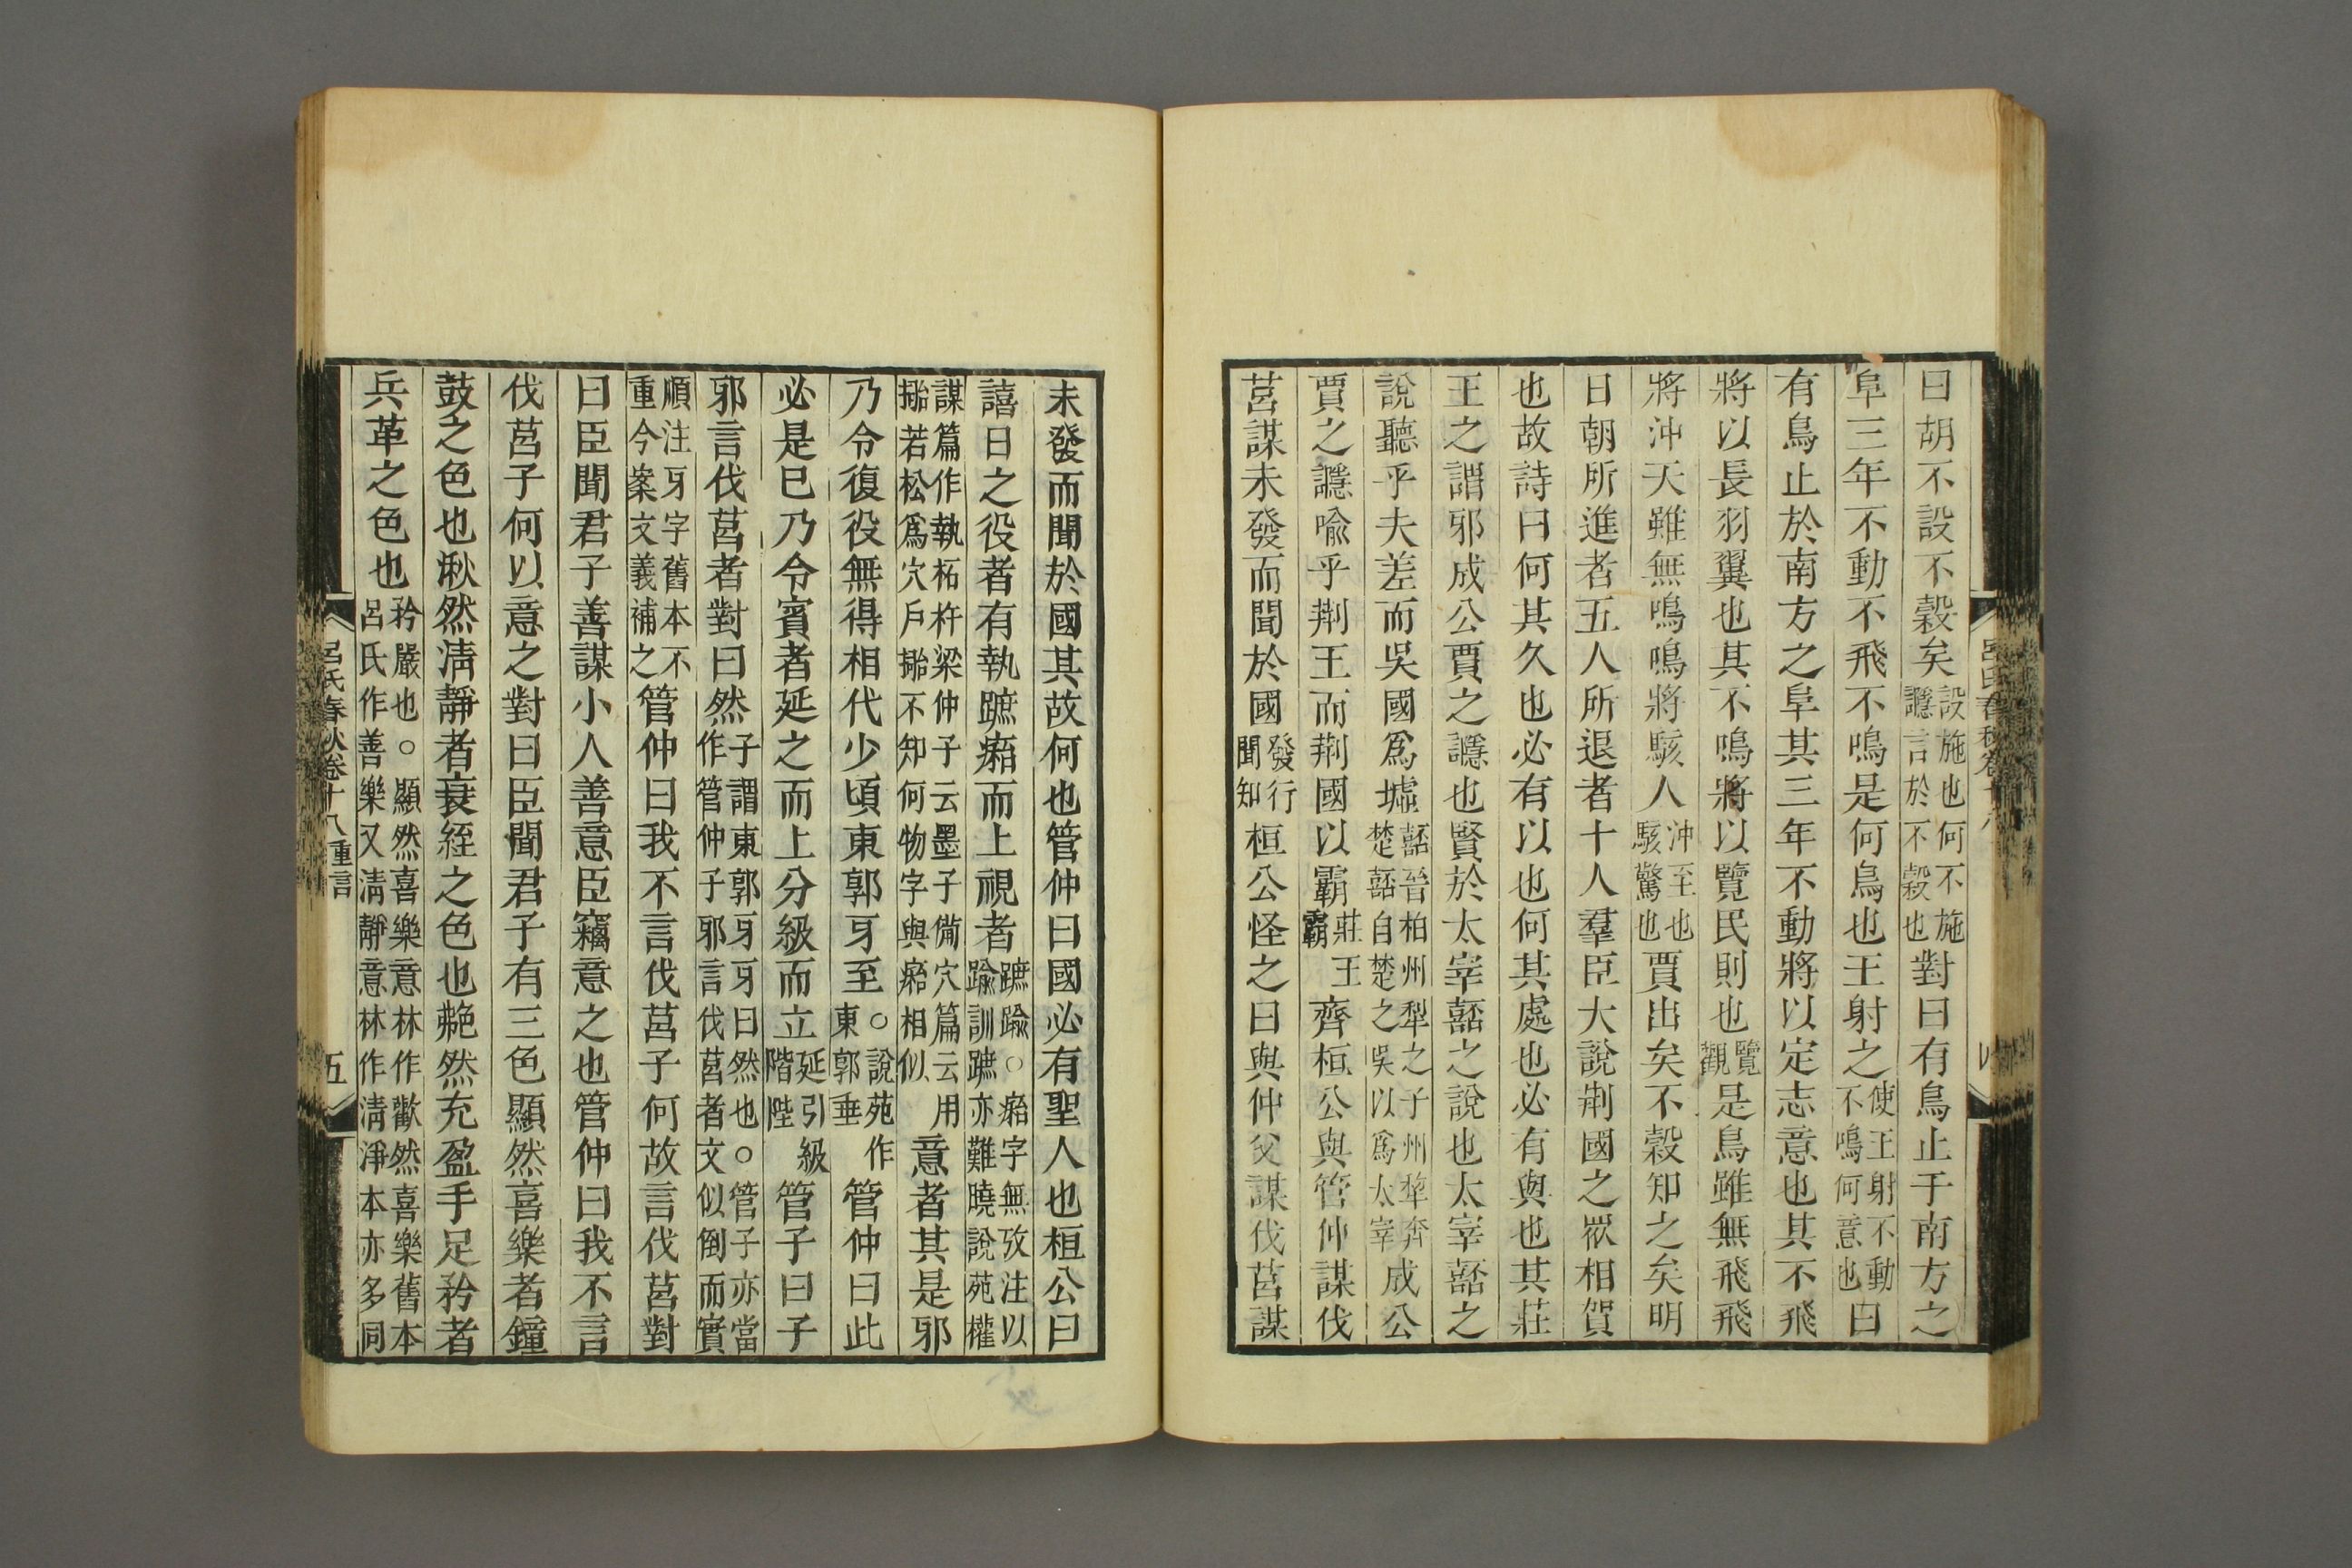 曰胡不設不穀矣設施也何不施讔言於不穀也對曰有鳥止于南方之
阜三年不動不飛不鳴是何鳥也王射之使王射不動不鳴何意也曰
有鳥止於南方之阜其三年不動將以定志意也其不飛
將以長羽翼也其不鳴將以覽民則也覽觀是鳥雖無飛飛
將沖天雖無鳴鳴將駭人沖至也駭驚也賈出矣不穀知之矣明
日朝所進者五人所退者十人羣臣大說荆國之眾相賀
也故詩曰何其久也必有以也何其處也必有與也其莊
王之謂邪成公賈之讔也賢於太宰嚭之說也太宰嚭之
說聽乎夫差而吳國爲墟嚭晉柏州犁之子州犂奔楚嚭自楚之吳以爲太宰成公
賈之讔喻乎荆王而荆國以霸莊王霸齊桓公與管仲謀伐
莒謀未發而聞於國發行聞知桓公怪之曰與仲父謀伐莒謀
未發而聞於國其故何也管仲曰國必有聖人也桓公曰
譆日之役者有執蹠𤺺而上視者蹠踰○𤺺字無攷注以踰訓蹠亦難曉說苑權
謀篇作執柘杵梁仲子云墨子備穴篇云用㨖若松爲穴戶㨖不知何物字與𤺺相似意者其是邪
乃令復役無得相代少頃東郭牙至○說苑作東郭垂管仲曰此
必是已乃令賓者延之而上分級而立延引級階陛管子曰子
邪言伐莒者對曰然子謂東郭牙牙曰然也○管子亦當作管仲子邪言伐莒者文似倒而實
順注牙字舊本不重今案文義補之管仲曰我不言伐莒子何故言伐莒對
曰臣聞君子善謀小人善意臣竊意之也管仲曰我不言
伐莒子何以意之對曰臣聞君子有三色顯然喜樂者鐘
鼓之色也湫然淸靜者衰絰之色也艴然充盈手足矜者
兵革之色也矜嚴也○顯然喜樂意林作歡然喜樂舊本呂氏作善樂又淸靜意林作淸淨本亦多同
呂氏春秋卷十八重言
五